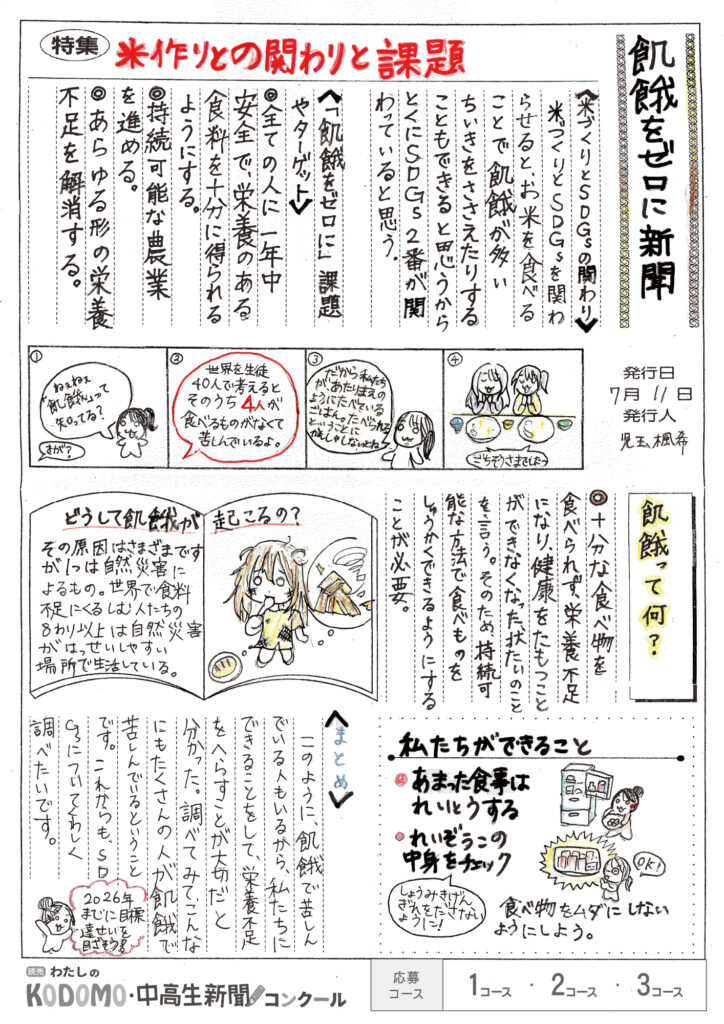 飢餓をゼロに新聞
特集
米作りとの関わりと課題
〈米づくりとSDGsの関わり〉
米づくりとSDGsを関わ
らせると、お米を食べる
ことで飢餓が多い
ちいきをささえたりする
こともできると思うから
とくにSDGs2番が関
わっていると思う。
〈「飢餓をゼロに」課題
やターゲット〉
◎全ての人に一年中
安全で、栄養のある
食料を十分に得られる
ようにする。
◎持続可能な農業
を進める。
◎あらゆる形の栄養
不足を解消する。
発行日
7月11日
発行人
児玉楓希
①
ねぇねぇ
飢餓って
知ってる?
きが?
②
世界を生徒
40人で考えると
そのうち4人が
食べるものがなくて
苦しんでいるよ。
③
だから私たち
があたりまえの
ようにたべている
ごはん。たべられる
ということに
かんしゃしないとね
④
ごちそうさまでした〜
飢餓って何?
◎十分な食べ物を
食べられず、栄養不足
になり、健康をたもつこと
ができなくなった状たいのこと
を言う。そのため、持続可
能な方法で食べものを
しゅうかくできるようにする
ことが必要。
どうして飢餓が起こるの?
その原因はさまざまです
が1つは自然災害に
よるもの。世界で食料
不足にくるしむ人たちの
8わり以上は自然災害
がはっせいしやすい
場所で生活している。
私たちができること
あまった食事は
れいとうする
れいぞうこの
中身をチェック
しょうみきげん
ぎれをださない
ように!
OK!
食べ物をムダにしない
ようにしよう。
〈まとめ〉
このように、飢餓で苦しん
でいる人もいるから、私たちに
できることをして、栄養不足
をへらすことが大切だと
分かった。調べてみて、こんな
にもたくさんの人が飢餓で
苦しんでいるということ
です。これからも、SD
Gsについてくわしく
調べたいです。
2026年
までに目標
達せいを
目ざそう!
読売 わたしの
KODOMO・中高生新聞コンクール
応募
コース
1コース・2コース・3コース